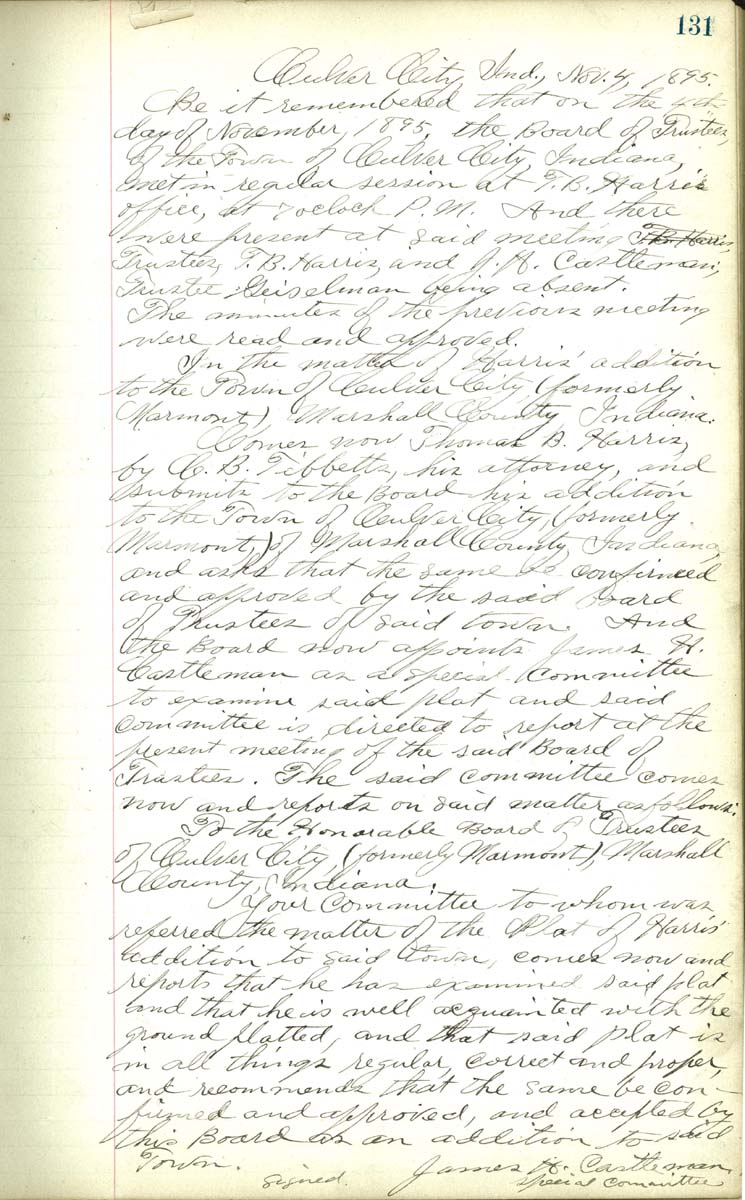 131
Culver City, Ind., Nov. 4, 1895.
Be it remembered that on the 4th
day of November, 1895, the Board of Trustees,
of the Town of Culver City, Indiana,
met in regular session at T. B. Harris
office, at 7 oclock P.M. And there
were present at said meeting T. B. Harris,
Trustees, T. B. Harris, and J. H. Castleman,
Trustee Geiselman being absent.
The minutes of the previous meeting
were read and approved.
In the matter of Harris' addition
to the Town of Culver City, (formerly
Marmont) Marshall County, Indiana.
Comes now Thomas B. Harris,
by C. B. Tibbetts, his attorney, and
submits to the Board his addition
to the Town of Culver City, (formerly
Marmont,) of Marshall County, Indiana,
and asks that the same be confirmed
and approved by the said Board
of Trustees of said town. And
the Board now appoints James H.
Castleman as a special committee
to examine said plat and said
committee is directed to report at the
present meeting of the said Board of
Trustees. The said committee comes
now and reports on said matter as follows:
To the Honorable Board of Trustees
of Culver City, (formerly Marmont) Marshall
County, Indiana.
Your Committee to whom was
referred the matter of the Plat of Harris'
addition to said town, comes now and
reports that he has examined said plat
and that he is well acquainted with the
ground platted, and that said plat is
in all things regular, correct and proper,
and recommends that the same be con-
firmed and approved, and accepted by
this Board as an addition to said
Town.
Signed. James H. Castleman,
Special Committee